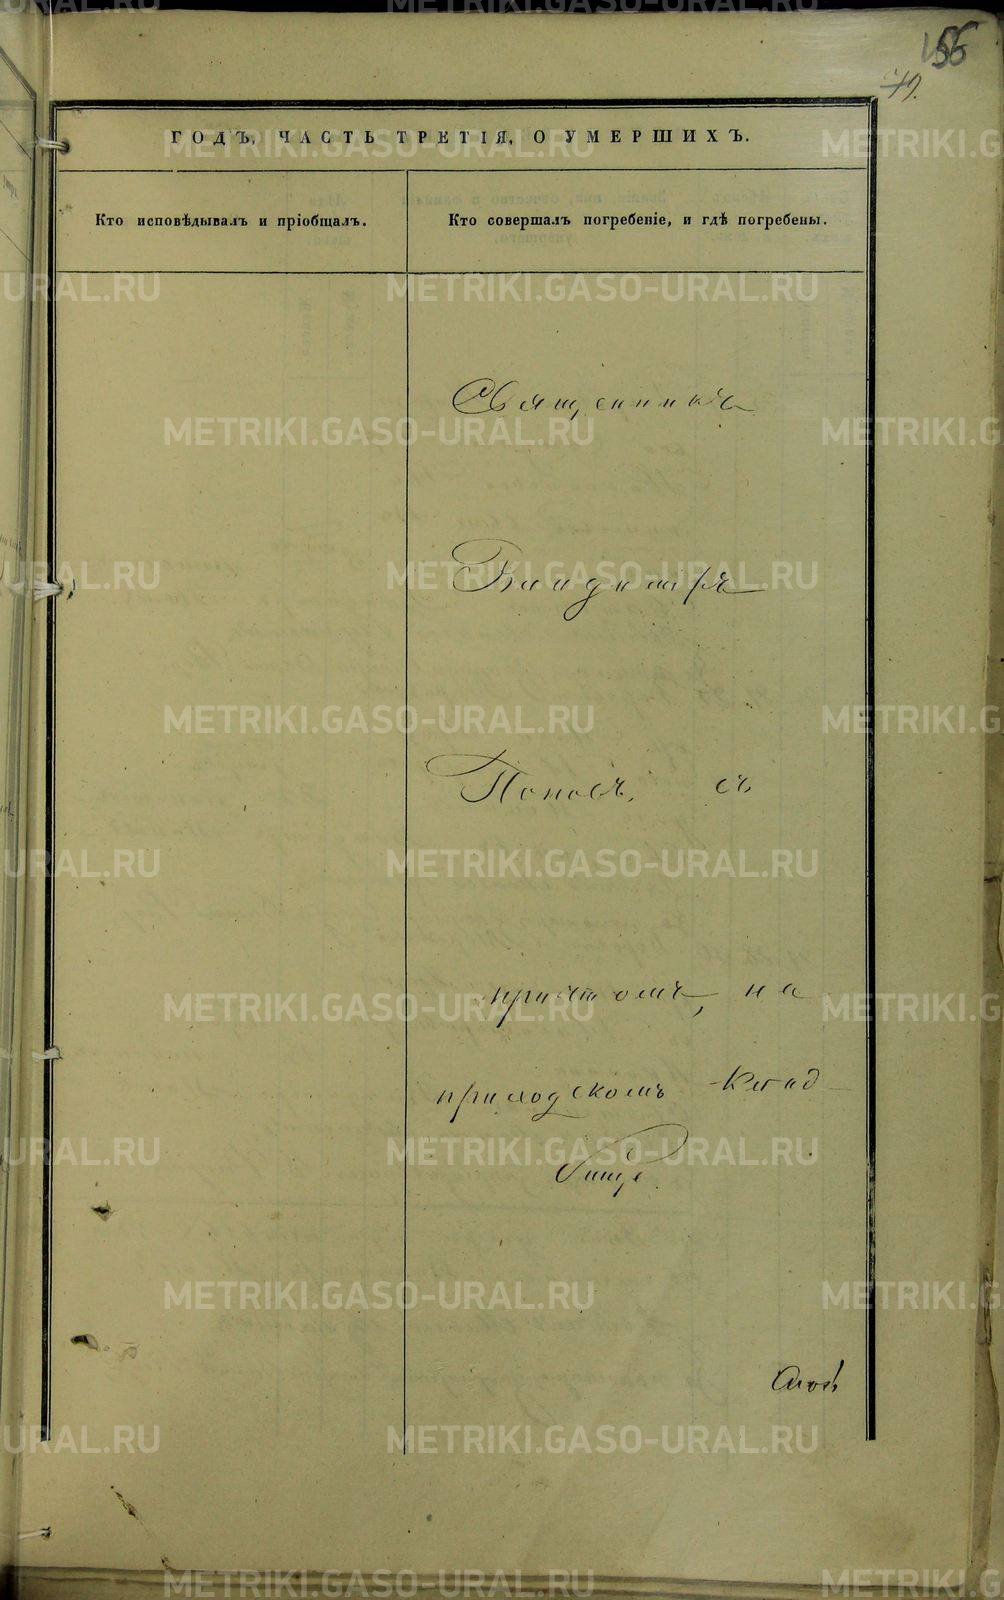 156
79.
ГОДЪ, ЧАСТЬ ТРЕТІЯ, О УМЕРШИХЪ.
Кто исповѣдывалъ и пріобщалъ.
Кто совершалъ погребеніе, и гдѣ погребены.
Священникъ
Владиміръ
Поповъ, съ
причтомъ, на
приходскомъ клад-
бище.
METRIKI.GASO-URAL.RU